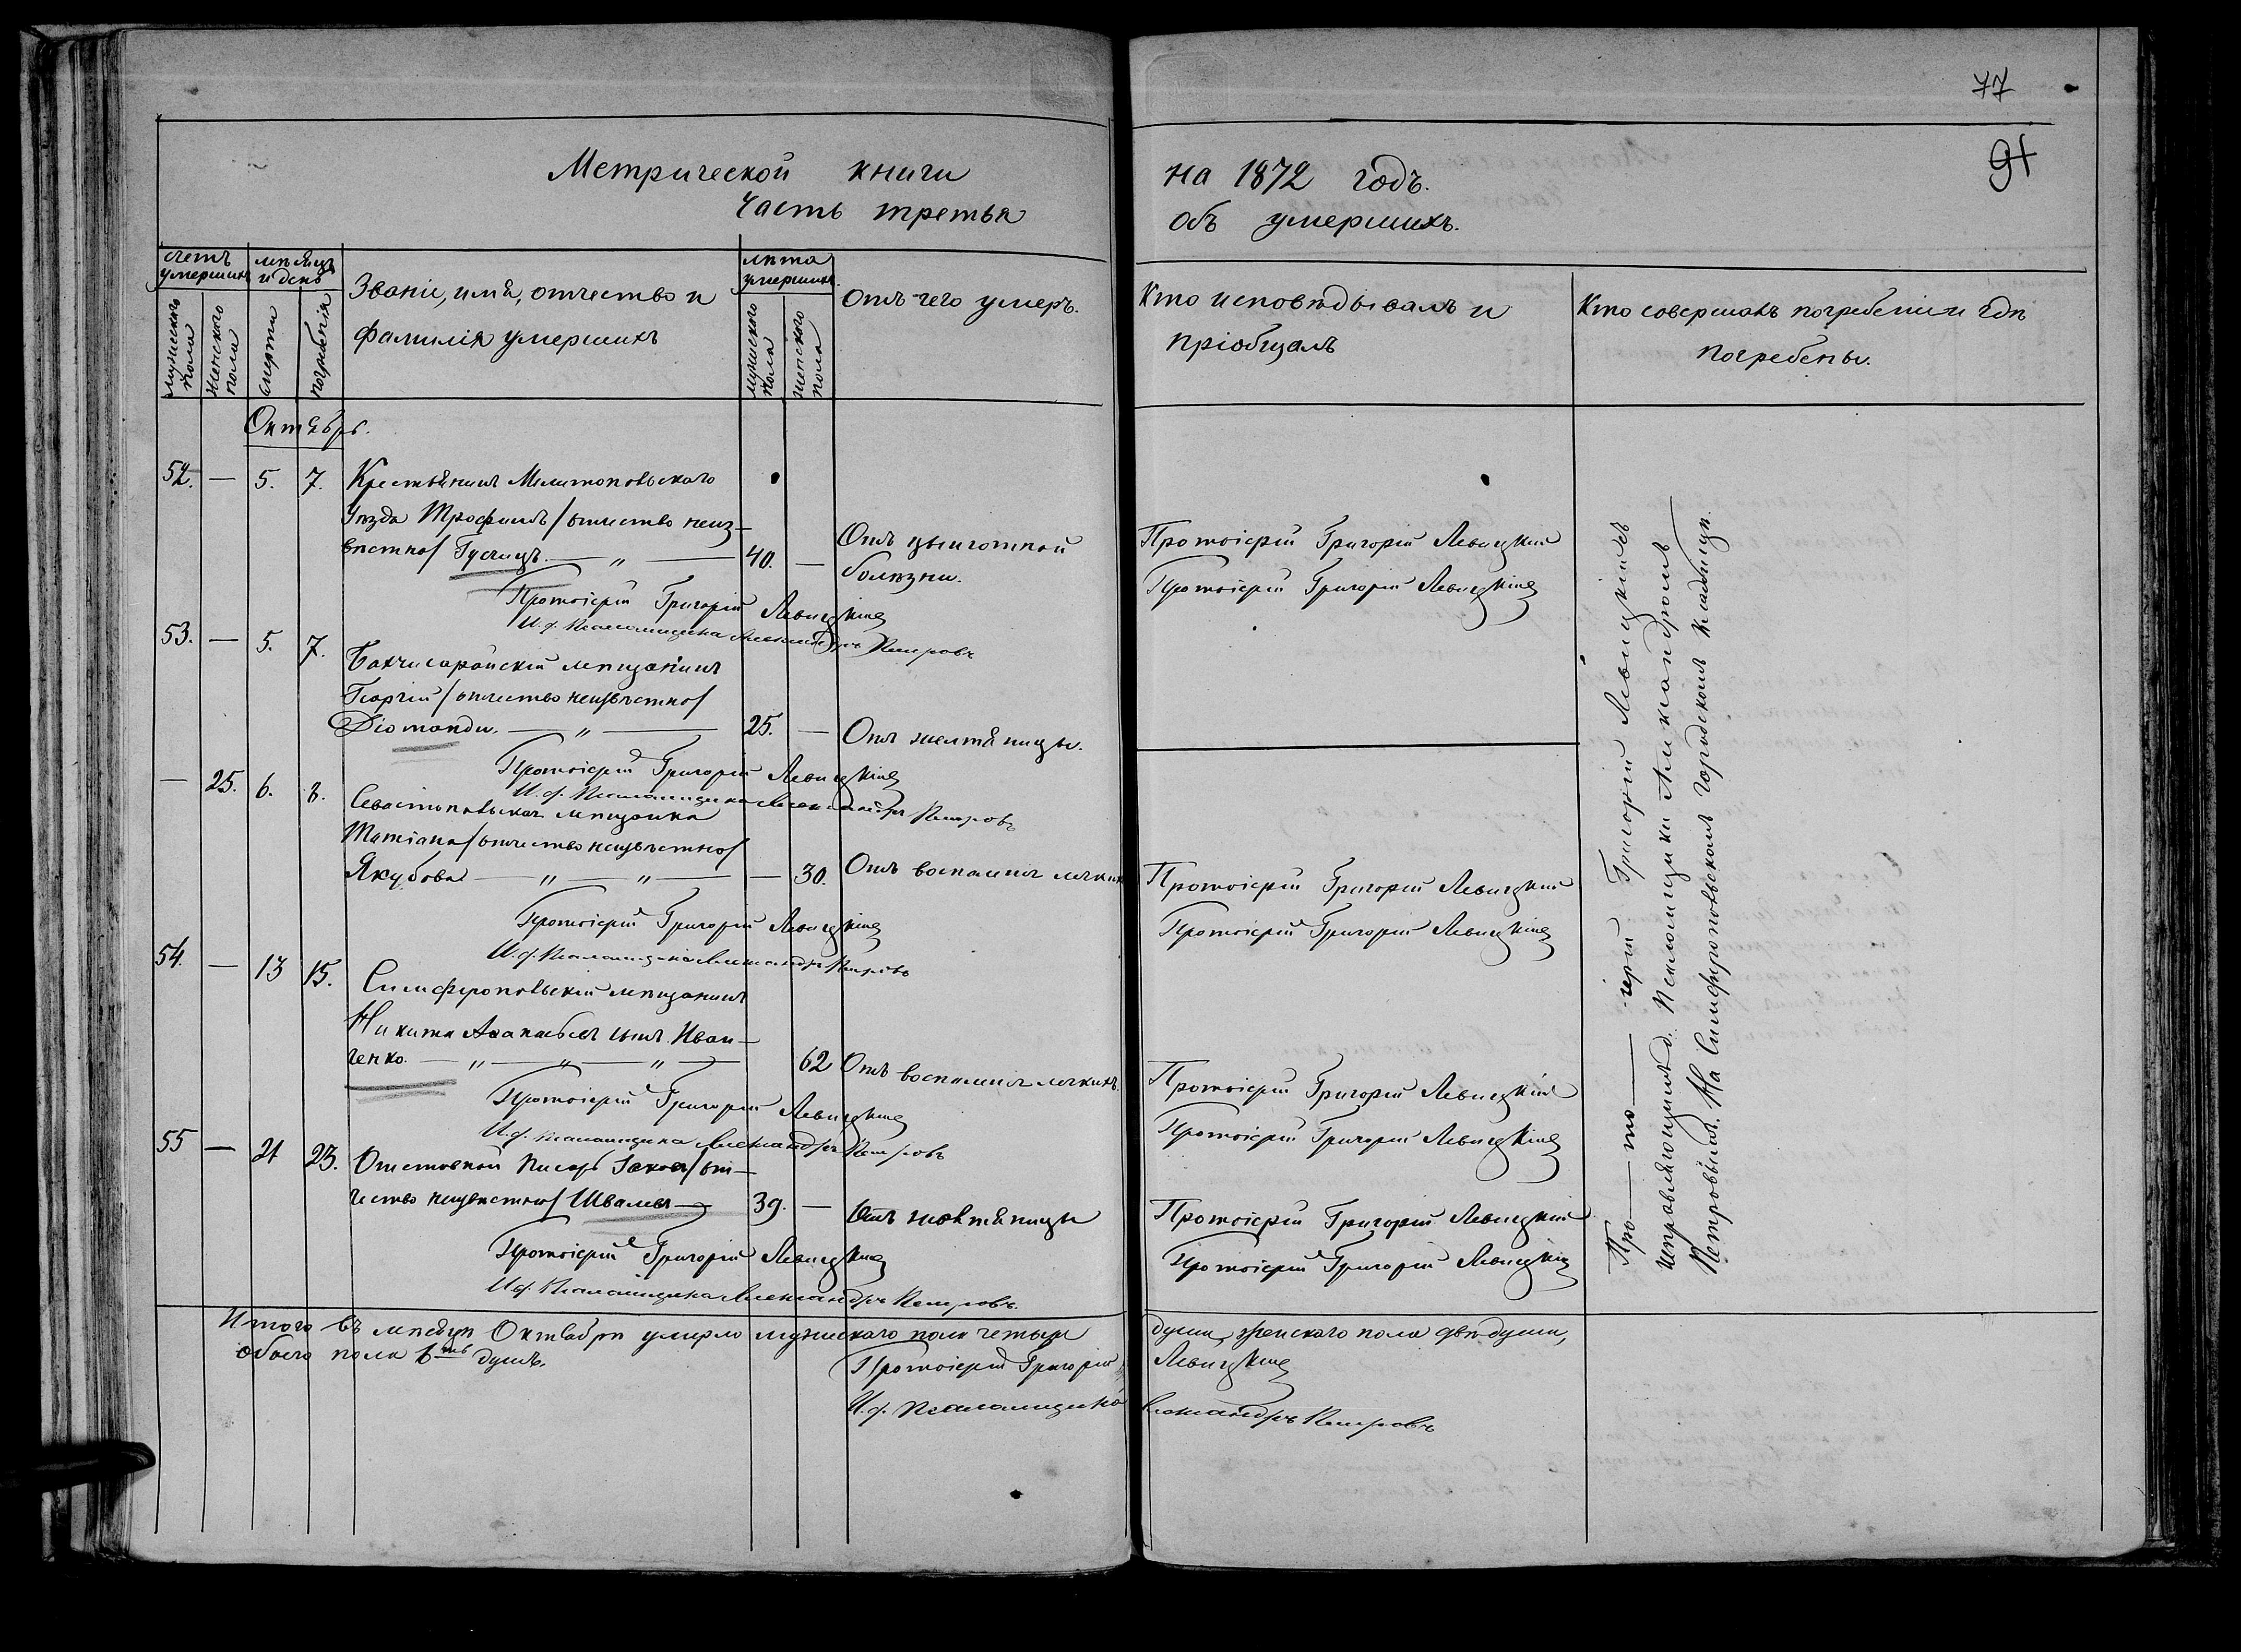 77
91
Метрической книги
Часть третья
на 1872 годъ.
объ умершихъ.
счетъ умершихъ
мѣсяцъ и день
Званіе, имя, отчество и
фамилія умершихъ
лѣта умершихъ.
Отъ чего умеръ.
Кто исповѣдывалъ и
пріобщалъ
Кто совершалъ погребеніе и гдѣ
погребены.
мужескаго пола
женскаго пола
смерти
погребенія
мужескаго пола
женскаго пола
Октябрь.
52. — 5. 7. Крестьянинъ Мелитопольскаго
Уѣзда Трофимъ /отчество неиз-
вѣстно/ Гусчицъ. — „ — 40. —
Отъ цынготной
болѣзни.
Протоіерей Григорій Левицкій
Протоіерей Григорій Левицкій
Протоіерей Григорій Левицкій
И.д. Псаломщика Александръ Петровъ
53. — 5. 7. Бахчисарайскій мѣщанинъ
Георгій /отчество неизвѣстно/
Діоманди. — „ — 25. — Отъ желтяницы.
Протоіерей Григорій Левицкій
И.д. Псаломщика Александръ Петровъ
— 25. 6. 8. Севастопольская мѣщанка
Татіана /отчество неизвѣстно/
Якубова — „ — „ — — 30. Отъ воспаленія легкихъ
Протоіерей Григорій Левицкій
Протоіерей Григорій Левицкій
Протоіерей Григорій Левицкій
И.д. Псаломщика Александръ Петровъ
54. — 13 15. Симферопольскій мѣщанинъ
Никита Аѳанасьевъ сынъ Иван-
ченко. — „ — „ — „ — 62 Отъ воспаленія легкихъ.
Протоіерей Григорій Левицкій
Протоіерей Григорій Левицкій
Протоіерей Григорій Левицкій
И.д. Псаломщика Александръ Петровъ
55 — 21 23. Отставной писарь Іаковъ /от-
чество неизвѣстно/ Шваловъ — 39. — Отъ желтяницы
Протоіерей Григорій Левицкій
Протоіерей Григорій Левицкій
Протоіерей Григорій Левицкій
И.д. Псаломщика Александръ Петровъ.
Про — то — іерей Григорій Левицкій съ
исправляющимъ д. Псаломщика Александромъ
Петровымъ. На Симферопольскомъ городскомъ кладбищѣ.
Итого въ мѣсяцѣ Октябрѣ умерло мужескаго пола четыри души, женскаго пола двѣ души,
обоего пола 6ть душъ.
Протоіерей Григорій Левицкій
И.д. Псаломщика Александръ Петровъ